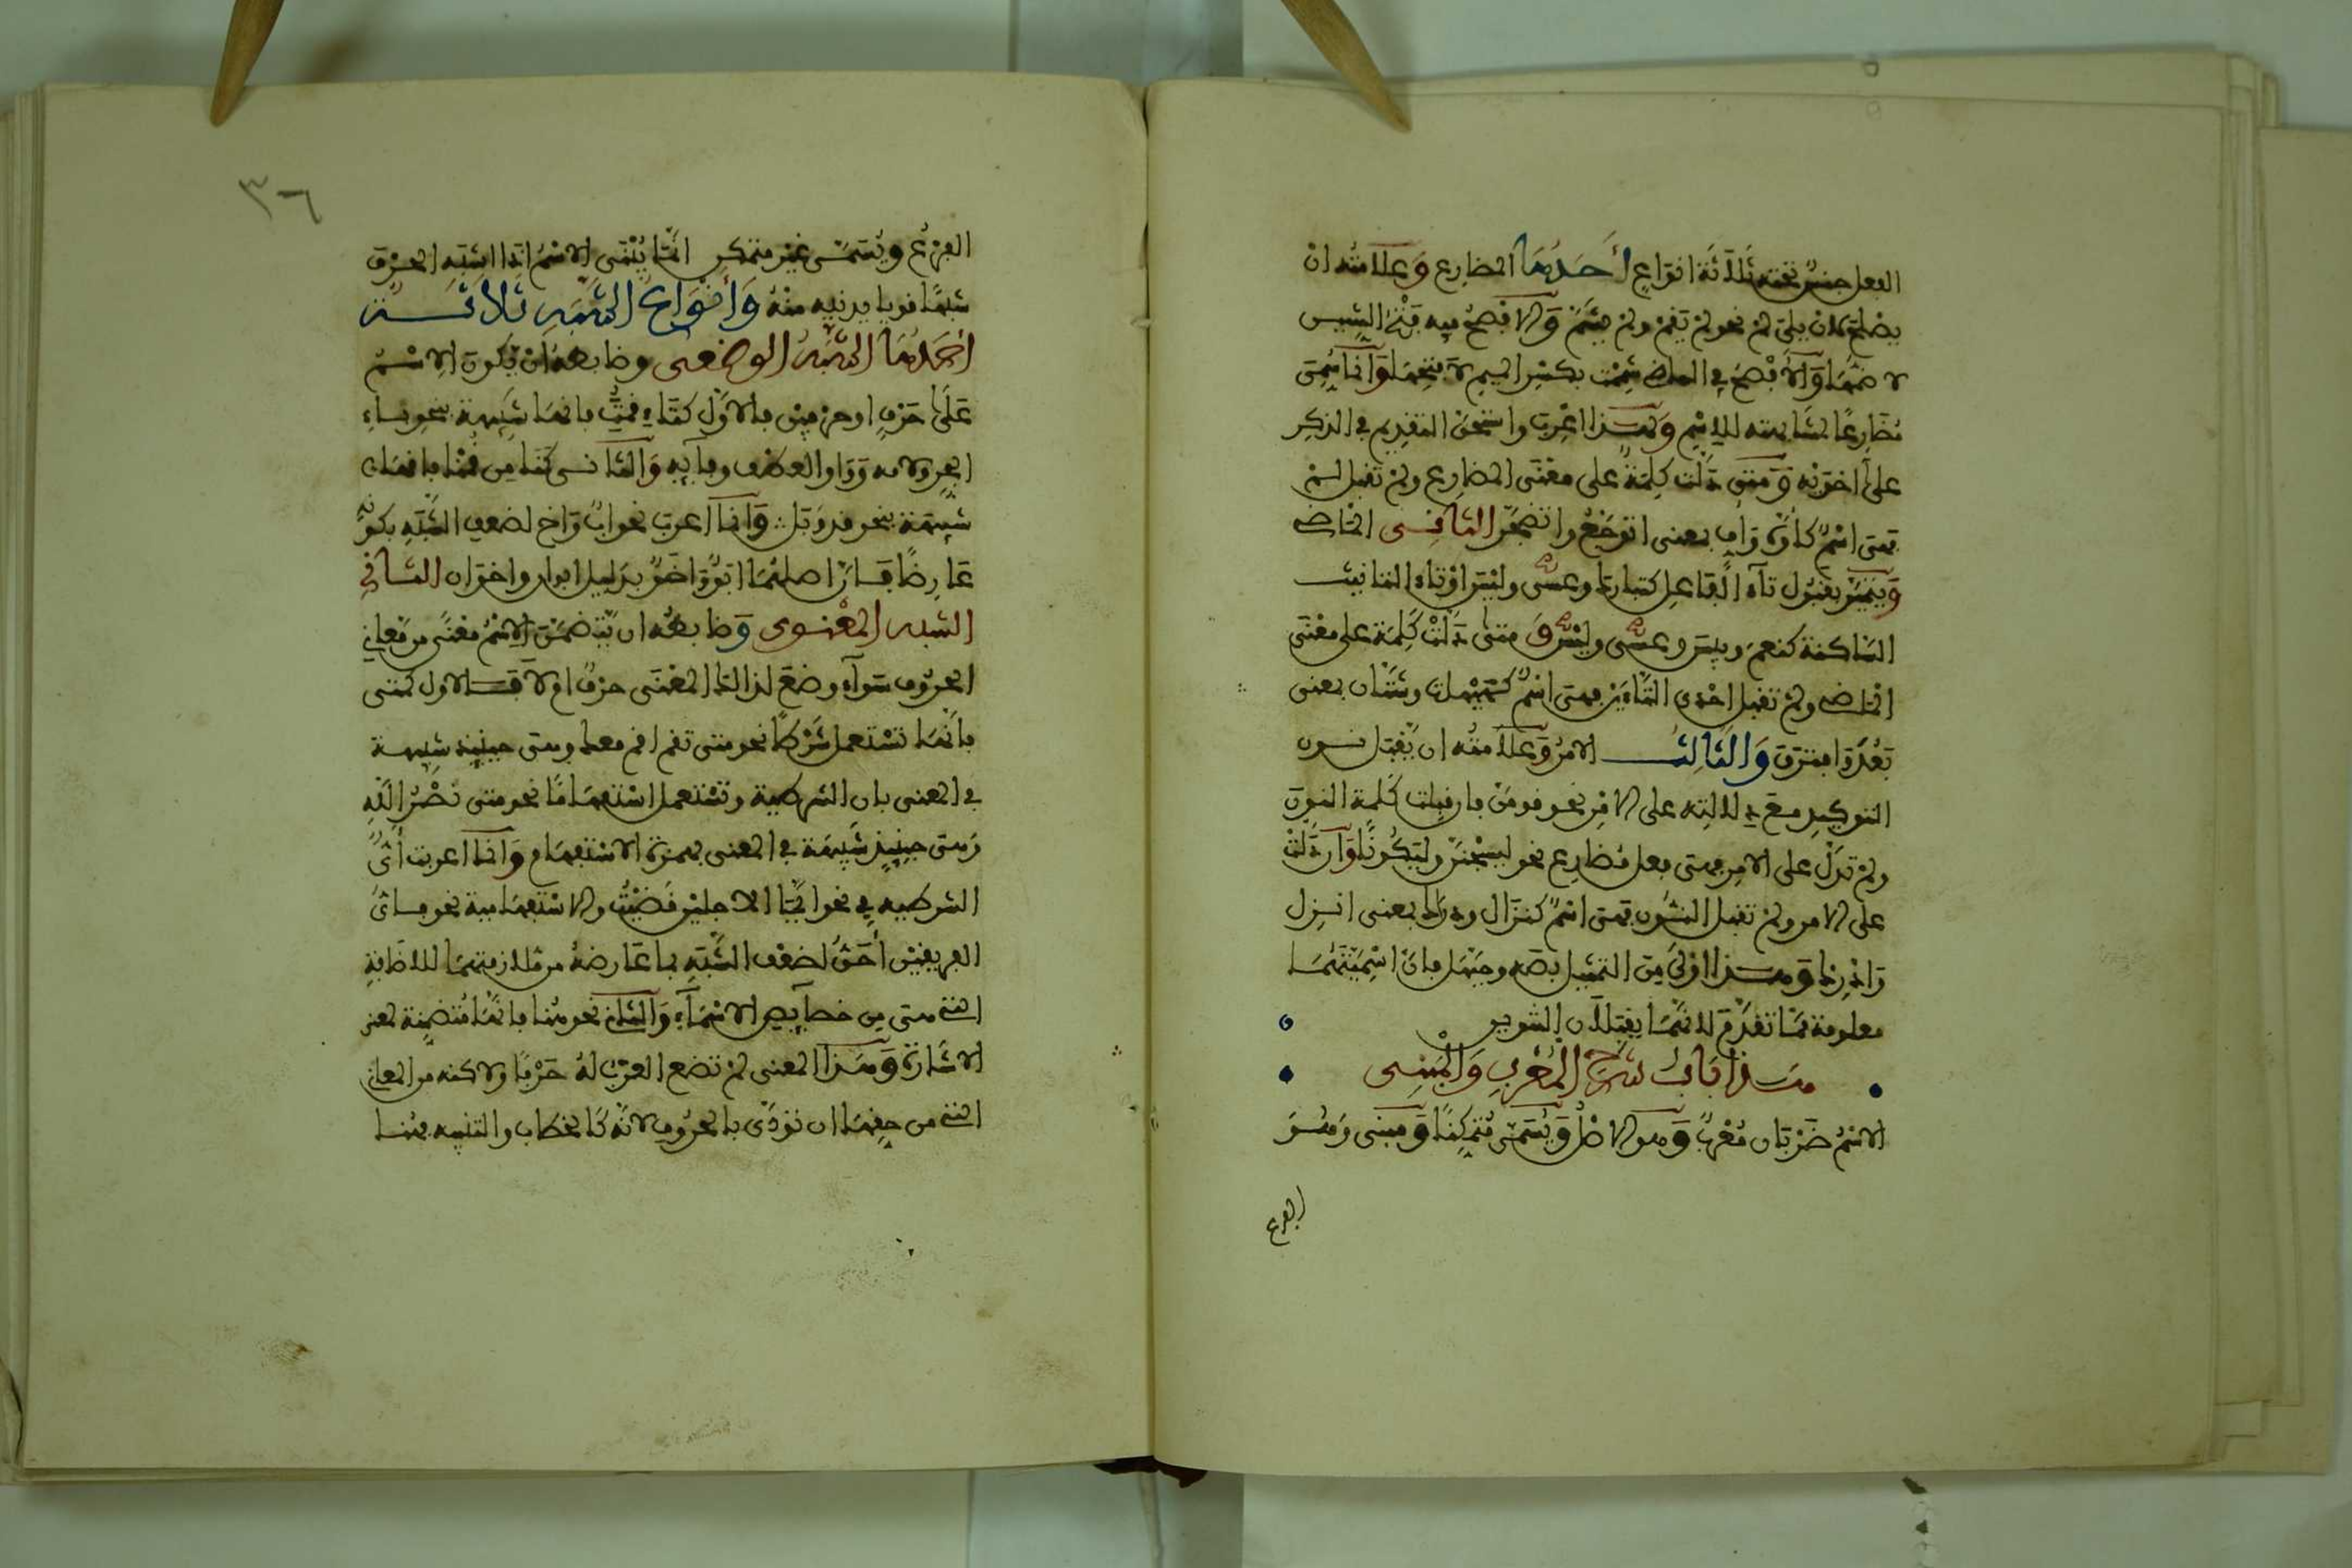 الفعل جنس تحته ثلاثة انواع أحدها المضارع وعلامته ان
يصلح لان يلي لم نحو لم يقم ولم يشم والافصح فيه فتح الشين
لا ضمها والافصح في الماضي شممت بكسر الميم لا فتحها وانما سمي
مضارعا لمشابهته للاسم ولهذا اعرب واستحق التقديم في الذكر
على اخويه ومتى دلت كلمة على معنى المضارع ولم تقبل لم
فهي اسم كأوه وأف بمعنى اتوجع واتضجر الثاني الماضي
ويتميز بقبول تآء الفاعل كتبارك وعسى وليس او تاء التانيث
الساكنة كنعم وبيس وعسى وليس ومتى دلت كلمة على معنى
الماضي ولم تقبل احدى التاءين فهي اسم كهيهات وشتان بمعنى
بعد وافترق والثالث الامر وعلامته ان يقبل نون
التوكيد مع دلالته على الامر نحو قومن فان قبلت كلمة النون
ولم تدل على الامر فهي فعل مضارع نحو ليسجنن وليكونا وان دلت
على الامر ولم تقبل النون فهي اسم كنزال ودراك بمعنى انزل
وادرك وهذا اولى من التمثيل بصه وحيهل فان اسميتهما
معلومة مما تقدم لانهما يقبلان التنوين
هذا باب شرح المعرب والمبني
الاسم ضربان معرب وهو الاصل ويسمى متمكنا ومبني وهو
الفرع
٣٦
الفرع ويسمى غير متمكن انما يبنى الاسم اذا اشبه الحرف
شبها قويا يدنيه منه وأنواع الشبه ثلاثة
أحدها الشبه الوضعي وضابطه ان يكون الاسم
على حرف او حرفين فالاول كتاء قمت فانها شبيهة بنحو باء
الجر ولامه وواو العطف وفآيه والثاني كنا من قمنا فانها
شبيهة بنحو قد وبل وانما اعرب نحو اب واخ لضعف الشبه بكونه
عارضا فان اصلهما ابو واخو بدليل ابوان واخوان الثاني
الشبه المعنوي وضابطه ان يتضمن الاسم معنى من معاني
الحروف سوآء وضع لذالك المعنى حرف ام لا فالاول كمتى
فانها تستعمل شرطا نحو متى تقم اقم معك وهي حينيذ شبيهة
في المعنى بان الشرطية وتستعمل استفهاما نحو متى نصر الله
وهي حينيذ شبيهة في المعنى بهمزة الاستفهام وانما اعربت أي
الشرطية في نحو أيما الاجلين قضيت والاستفهامية نحو فاي
الفريقين أحق لضعف الشبه بما عارضه من ملازمتهما للاضافة
التي هي من خصآيص الاسمآء والثاني نحو هنا فانها متضمنة لمعنى
الاشارة وهذا المعنى لم تضع العرب له حرفا ولاكنه من المعاني
التي من حقها ان تودى بالحروف لانه كالخطاب والتنبيه فهنا